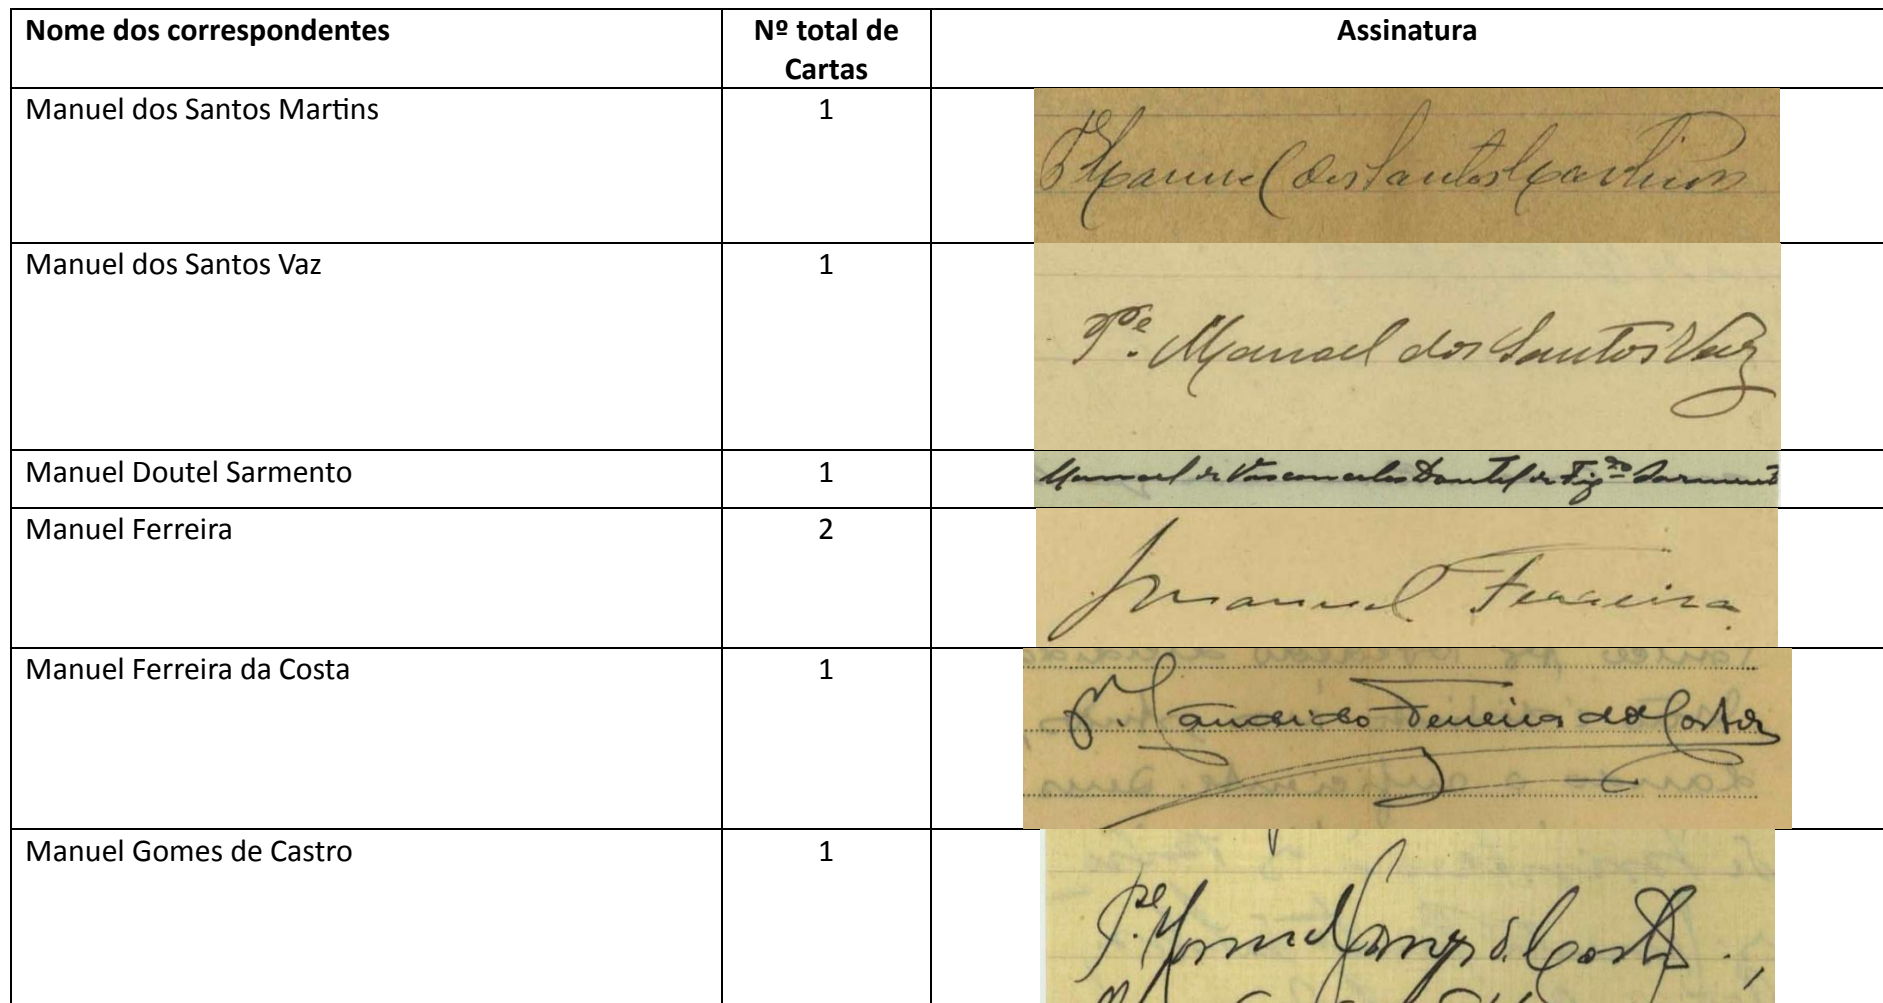 Nome dos correspondentes
Nº total de
Cartas
Assinatura
Manuel dos Santos Martins
1
Pe Manuel dos Santos Martins
Manuel dos Santos Vaz
1
Pe. Manoel dos Santos Vaz
Manuel Doutel Sarmento
1
Manoel de Vasconcelos Doutel de Figdo Sarmento
Manuel Ferreira
2
Manuel Ferreira
Manuel Ferreira da Costa
1
P. Candido Ferreira da Costa
Manuel Gomes de Castro
1
Pe. Manuel Gomes d.